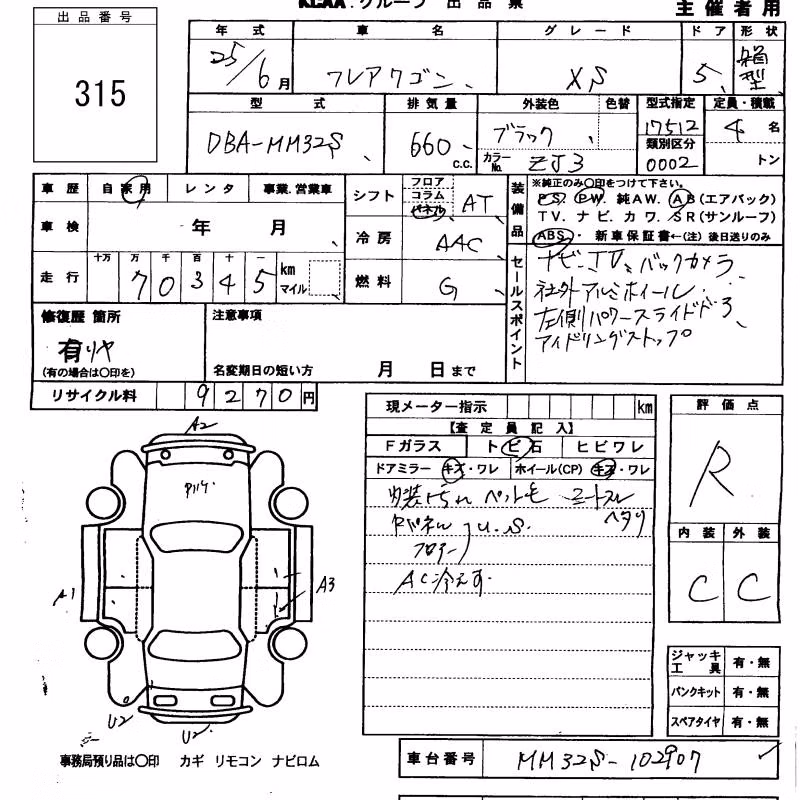 KCAA.グループ 出品票
主催者用
出品番号
315
年式 車名 グレード ドア 形状
25/6月 フレアワゴン XS 5 箱型
型式 排気量 外装色 色替 型式指定 定員・積載
DBA-MM32S 660 c.c. ブラック 17512 4名
カラーNo. ZJ3 類別区分 0002 トン
車歴 自家用 レンタ 事業.営業車
車検 年 月
走行 十万 万 千 百 十 一
70345 km マイル
シフト フロア コラム パネル AT
冷房 AAC
燃料 G
装備品
※純正のみ〇印をつけて下さい。
PS. PW. 純AW. AB(エアバック)
TV. ナビ. カワ. SR(サンルーフ)
ABS・ 新車保証書←(注) 後日送りのみ
セールスポイント
ナビ・TV、バックカメラ
社外アルミホイール
左側パワースライドドア
アイドリングストップ
修復歴 箇所
有リヤ
(有の場合は〇印を)
注意事項
名変期日の短い方 月 日まで
リサイクル料 9270円
現メーター指示 km
【査定員記入】
Fガラス トビ石 ヒビワレ
ドアミラー キズ・ワレ ホイール(CP) キズ・ワレ
内装ヨゴレ ペット毛 シートスレ
ヘタリ
Rパネル U.S.
フロアー
AC冷えず
評価点
R
内装 外装
C C
ジャッキ工具 有・無
パンクキット 有・無
スペアタイヤ 有・無
A2
A1
A3
U2
U2
事務局預り品は〇印 カギ リモコン ナビロム
車台番号 MM32S-102907